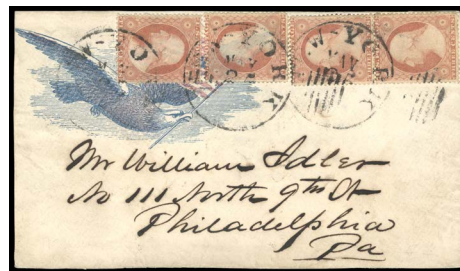 NEW-YORK
MAY
NEW-YORK
MAY
Mr William Idler
No 111 North 9th St
Philadelphia
Pa